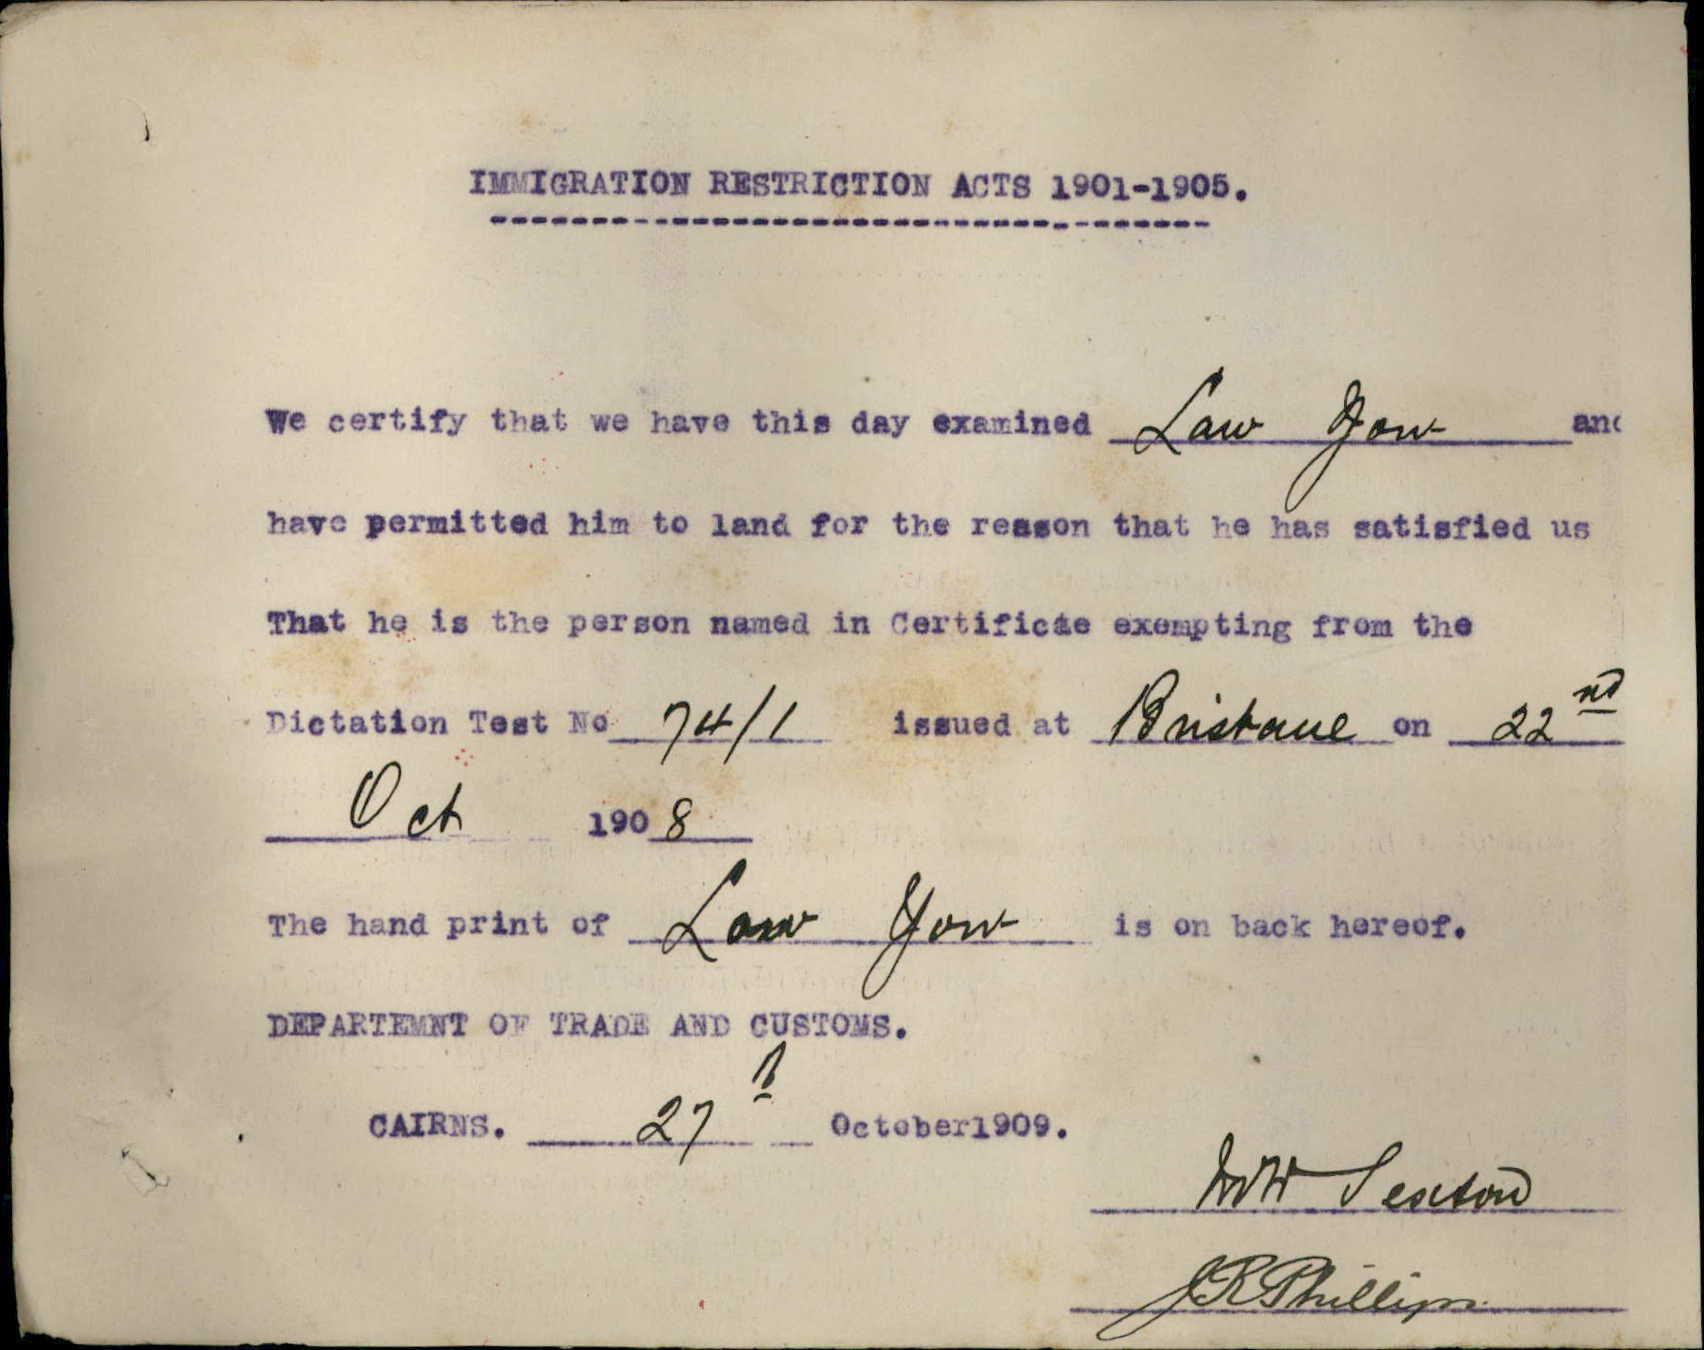 IMMIGRATION RESTRICTION ACTS 1901-1905.
We certify that we have this day examined Law Yow and
have permitted him to land for the reason that he has satisfied us
That he is the person named in Certificate exempting from the
Dictation Test No 74/1 issued at Brisbane on 22nd
Oct 1908
The hand print of Law Yow is on back hereof.
DEPARTEMNT OF TRADE AND CUSTOMS.
CAIRNS. 27th October1909.
Sexton
J R Phillips